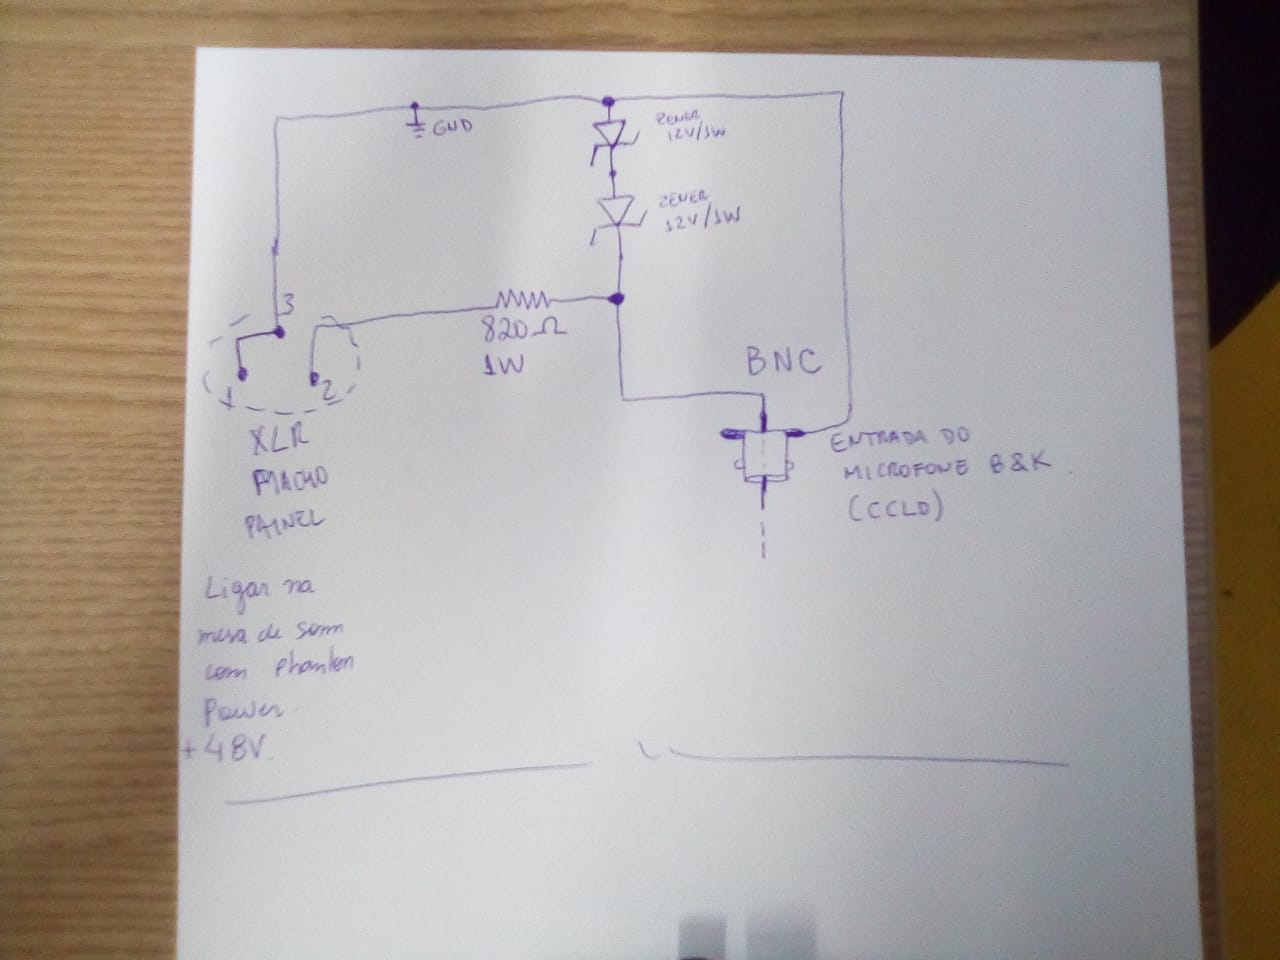 GND
ZENER
12V/1W
ZENER
12V/1W
3
1
2
820Ω
1W
BNC
XLR
MACHO
PAINEL
ENTRADA DO
MICROFONE B&K
(CCLD)
Ligar na
mesa de som
com Phantom
Power
+48V.